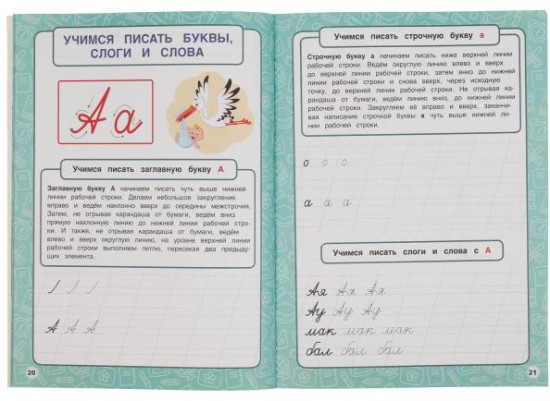 УЧИМСЯ ПИСАТЬ БУКВЫ,
СЛОГИ И СЛОВА
А а
Учимся писать заглавную букву А
Заглавную букву А начинаем писать чуть выше нижней
линии рабочей строки. Делаем небольшое закругление
вправо и ведём наклонно вверх до середины межстрочия.
Затем, не отрывая карандаша от бумаги, ведём вниз
прямую наклонную линию до нижней линии рабочей стро-
ки. И также, не отрывая карандаша от бумаги, ведём
влево и вверх округлую линию, на уровне верхней линии
рабочей строки выполняем петлю, пересекая два предыду-
щих элемента.
А А А
20
Учимся писать строчную букву а
Строчную букву а начинаем писать ниже верхней линии
рабочей строки. Ведём округлую линию влево и вверх
до верхней линии рабочей строки, затем вниз до нижней
линии рабочей строки и снова вверх, через исходную
точку, до верхней линии рабочей строки. Не отрывая ка-
рандаша от бумаги, ведём линию вниз, до нижней линии
рабочей строки. Закругляем её вправо и вверх, заканчи-
вая написание строчной буквы а чуть выше нижней ли-
нии рабочей строки.
о о о
а а а
Учимся писать слоги и слова с А
Ая Ая Ая
Ау Ау Ау
мак мак мак
бал бал бал
21